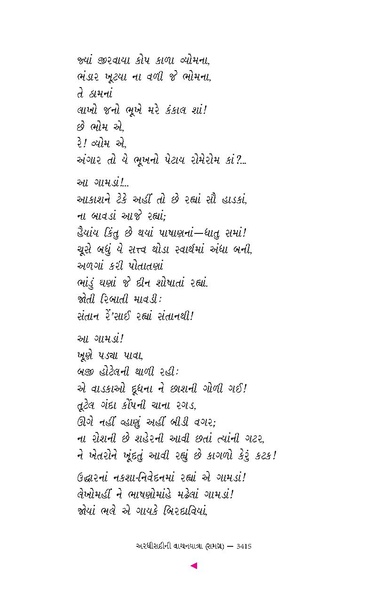 જ્યાં જીરવાયા કોપ કાળા વ્યોમના,
ભંડાર ખૂટ્યા ના વળી જે ભોમના,
તે ઠામનાં
લાખો જનો ભૂખે મરે કંકાલ શાં!
છે ભોમ એ,
રે! વ્યોમ એ,
અંગાર તો યે ભૂખનો પેટાય રોમેરોમ કાં?...
આ ગામડાં!...
આકાશને ટેકે અહીં તો છે રહ્યાં સૌ હાડકાં,
ના બાવડાં આજે રહ્યાં;
હૈયાંય કિંતુ છે થયાં પાષાણનાં—ધાતુ સમાં!
ચૂસે બધું યે સત્ત્વ થોડા સ્વાર્થમાં અંધા બની,
અળગાં કરી પોતાતણાં
ભાંડું ઘણાં જે દીન શોષાતાં રહ્યાં.
જોતી રિબાતી માવડી:
સંતાન રેં'સાઈ રહ્યાં સંતાનથી!
આ ગામડાં!
ખૂણે પડ્યા પાવા,
બજી હોટેલની થાળી રહી:
એ વાડકાઓ દૂધના ને છાશની ગોળી ગઈ!
તૂટેલ ગંદા કોંપની ચાના રગડ,
ઊગે નહીં વ્હાણું અહીં બીડી વગર;
ના રોશની છે શહેરની આવી છતાં ત્યાંની ગટર,
ને ખેતરોને ખૂંદતું આવી રહ્યું છે કાગળો કેરું કટક!
ઉદ્ધારનાં નકશા-નિવેદનમાં રહ્યાં એ ગામડાં!
લેખોમહીં ને ભાષણોમાંહે મઢેલાં ગામડાં!
જોયાં ભલે એ ગાયકે બિરદાવિયાં,
અરધીસદીની વાચનયાત્રા (સમગ્ર) — 3415